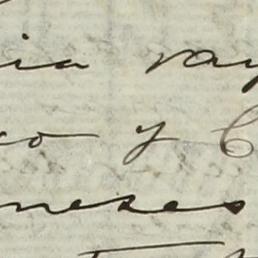 ia ray
co y C
neses